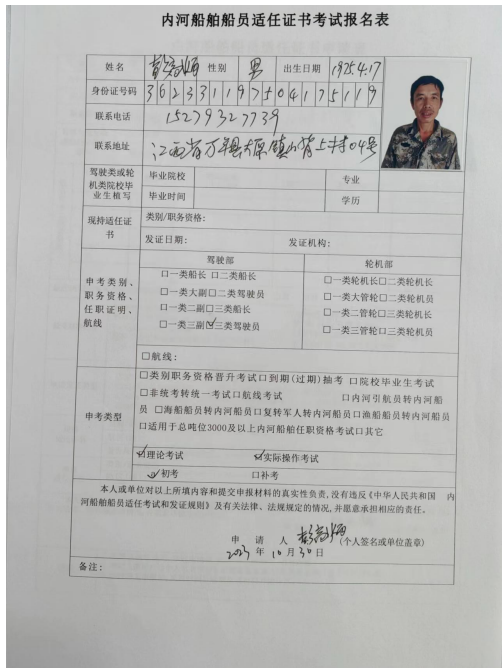 内河船舶船员适任证书考试报名表
姓名 性别 男 出生日期 1975.4.17
身份证号码 362331197504175119
联系电话 15279327739
联系地址 江西省万年县大源镇山背上村04号
驾驶类或轮机类院校毕业生植写 毕业院校 专业
毕业时间 学历
现持适任证书 类别/职务资格:
发证日期: 发证机构:
申考类别、职务资格、任职证明、航线
驾驶部 轮机部
□一类船长 □二类船长 □一类轮机长□二类轮机长
□一类大副□二类驾驶员 □一类大管轮□二类轮机员
□一类二副□三类船长 □一类二管轮□三类轮机长
□一类三副☑三类驾驶员 □一类三管轮□三类轮机员
□航线:
申考类型
□类别职务资格晋升考试□到期(过期)抽考 □院校毕业生考试
□非统考转统一考试□航线考试 □内河引航员转内河船
员 □海船船员转内河船员□复转军人转内河船员□渔船船员转内河船员
□适用于总吨位3000及以上内河船舶任职资格考试□其它
☑理论考试 ☑实际操作考试
☑初考 □补考
本人或单位对以上所填内容和提交申报材料的真实性负责,没有违反《中华人民共和国 内
河船舶船员适任考试和发证规则》及有关法律、法规规定的情况,并愿意承担相应的责任。
申请人 (个人签名或单位盖章)
2023年10月30日
备注: